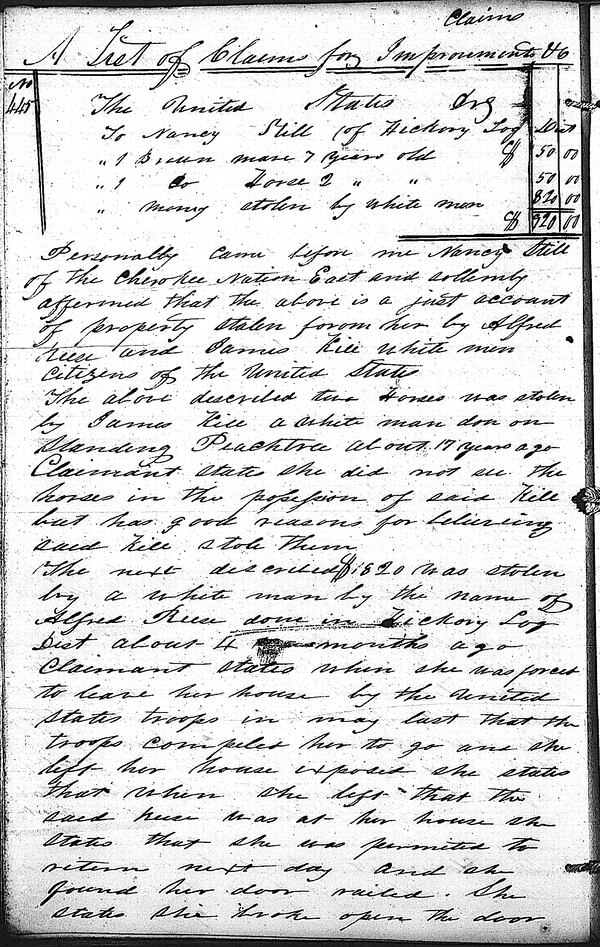 Claims
A List of Claims for Improvements &c
No
445
The United States Dr
To Nancy Still (of Hickory Log Dist
" 1 Brown mare 7 years old $ 50 00
" 1 Do Horse 2 " " 50 00
" money stolen by white men 820 00
$ 920 00
Personally came before me Nancy Still
of the Cherokee Nation East and sollemly
affermed that the above is a just account
of property stolen forom her by Alfred
Reese and James Kile white men
Citizens of the United States
The above described two Horses was stolen
by James Kile a white man don on
Standing Peachtree about 17 years ago
Claimant states she did not see the
horses in the possession of said Kile
but has good reasons for believeing
said Kile stole them
The next described $820 was stolen
by a white man by the name of
Alfred Reese done in Hickory Log
Dist about 4 months ago
Claimant states when she was forced
to leave her house by the United
States troops in may last that the
troops compeled her to go and she
left her house exposed she states
that when she left that the
said Reese was at her house she
states that she was permited to
return next day and she
found her door nailed. She
states she broke open the door